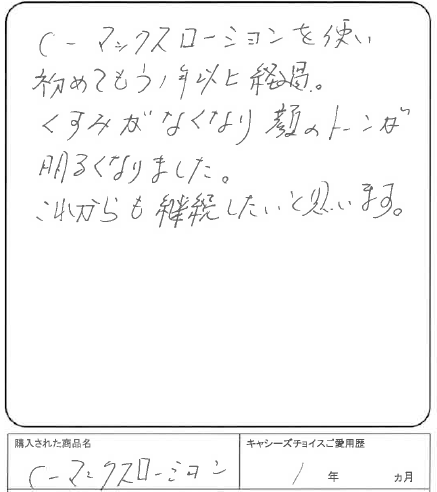 C-マックスローションを使い
初めてもう1年以上経過。
くすみがなくなり顔のトーンが
明るくなりました。
これからも継続したいと思います。
購入された商品名
キャシーズチョイスご愛用歴
C-マックスローション
1年 ヵ月